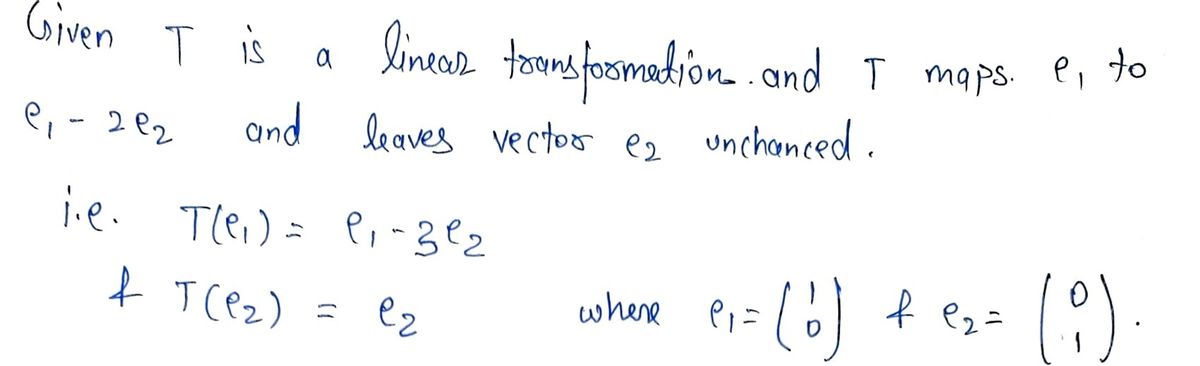 Given T is a linear transformation. and T maps. e₁ to
e₁ - 2e₂ and leaves vector e₂ unchanced.
i.e. T(e₁) = e₁ - 3e₂
& T(e₂) = e₂ where e₁ = (1 0) & e₂ = (0 1).